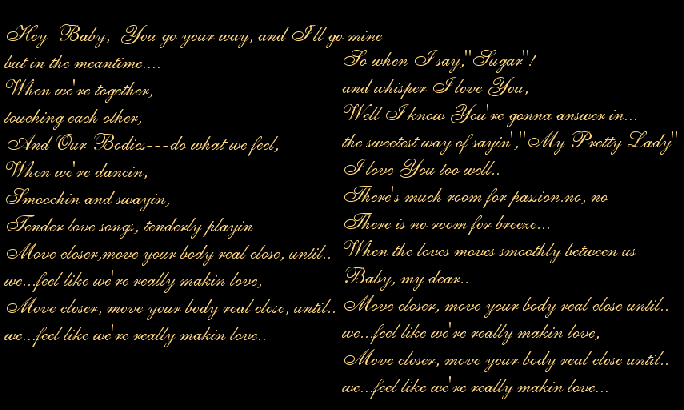 Hey Baby, You go your way, and I'll go mine
but in the meantime....
When we're together,
touching each other,
And Our Bodies---do what we feel,
When we're dancin,
Smoochin and swayin,
Tender love songs, tenderly playin
Move closer,move your body real close, until..
we...feel like we're really makin love,
Move closer, move your body real close, until..
we...feel like we're really makin love..
So when I say,"Sugar"!
and whisper I love You,
Well I know You're gonna answer in...
the sweetest way of sayin',"My Pretty Lady"
I love You too well..
There's much room for passion.no, no
There is no room for breeze...
When the loves moves smoothly between us
Baby, my dear..
Move closer, move your body real close until..
we...feel like we're really makin love,
Move closer, move your body real close until..
we...feel like we're really makin love...